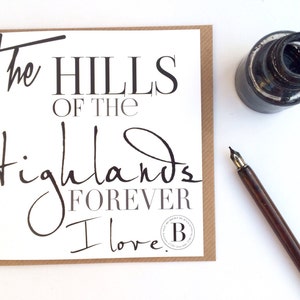 The HILLS
OF THE
Highlands
FOREVER
I love.
B